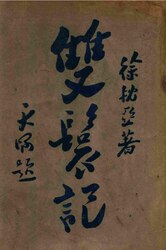 徐枕亞著
雙鬟記
天題